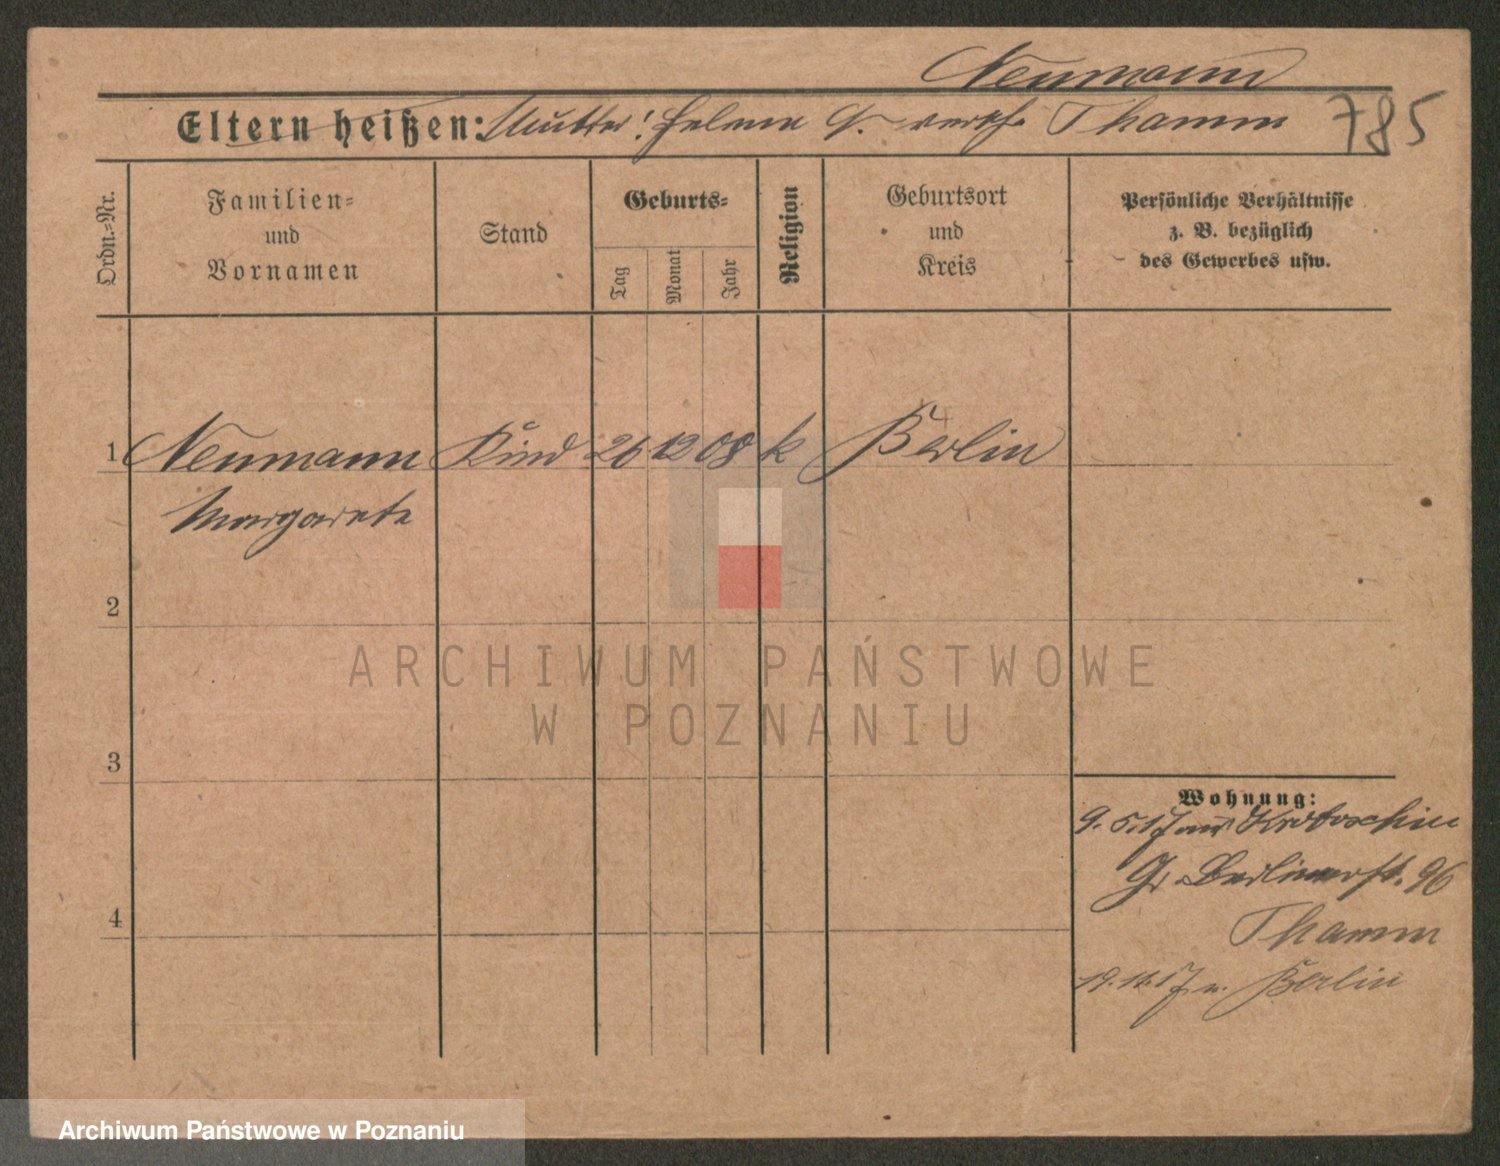 Neumann
Eltern heißen: Mutter: Helene N. verh. Thamm 785
Ordn.=Nr.
Familien=
und
Vornamen
Stand
Geburts=
Tag
Monat
Jahr
Religion
Geburtsort
und
Kreis
Persönliche Verhältnisse
z. B. bezüglich
des Gewerbes usw.
1 Neumann Kind 26 12 08 k Berlin
Margarete
2
3
4
Wohnung:
9.5.17 aus Krotoschin
Gr. Berlinerst. 96
Thamm
19.11.17 n. Berlin
ARCHIWUM PAŃSTWOWE
W POZNANIU
Archiwum Państwowe w Poznaniu